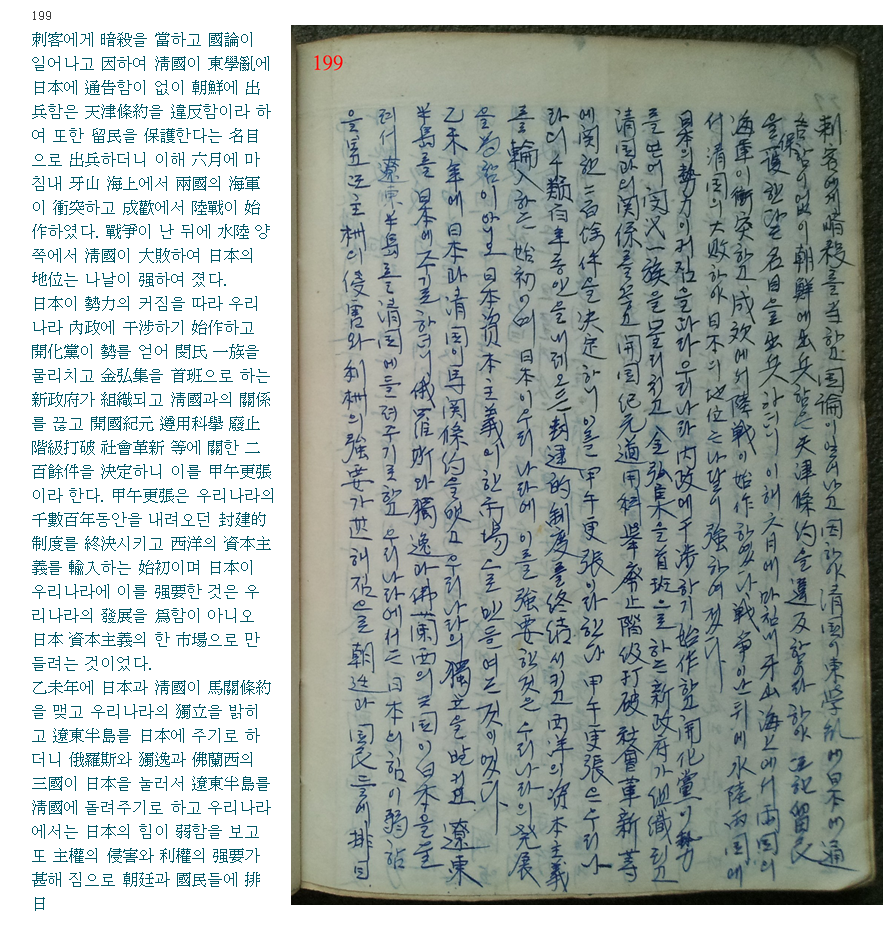 199
刺客에게 暗殺을 當하고 國論이
일어나고 因하여 淸國이 東學亂에
日本에 通告함이 없이 朝鮮에 出
兵함은 天津條約을 違反함이라 하
여 또한 留民을 保護한다는 名目
으로 出兵하더니 이해 六月에 마
침내 牙山 海上에서 兩國의 海軍
이 衝突하고 成歡에서 陸戰이 始
作하였다. 戰爭이 난 뒤에 水陸 양
쪽에서 淸國이 大敗하여 日本의
地位는 나날이 强하여 졌다.
日本이 勢力의 커짐을 따라 우리
나라 內政에 干涉하기 始作하고
開化黨이 勢를 얻어 閔氏 一族을
물리치고 金弘集을 首班으로 하는
新政府가 組織되고 淸國과의 關係
를 끊고 開國紀元 遵用科學 廢止
階級打破 社會革新 等에 關한 二
百餘件을 決定하니 이를 甲午更張
이라 한다. 甲午更張은 우리나라의
千數百年동안을 내려오던 封建的
制度를 終決시키고 西洋의 資本主
義를 輸入하는 始初이며 日本이
우리나라에 이를 强要한 것은 우
리나라의 發展을 爲함이 아니오
日本 資本主義의 한 市場으로 만
들려는 것이었다.
乙未年에 日本과 淸國이 馬關條約
을 맺고 우리나라의 獨立을 밝히
고 遼東半島를 日本에 주기로 하
더니 俄羅斯와 獨逸과 佛蘭西의
三國이 日本을 눌러서 遼東半島를
淸國에 돌려주기로 하고 우리나라
에서는 日本의 힘이 弱함을 보고
또 主權의 侵害와 利權의 强要가
甚해 짐으로 朝廷과 國民들에 排
日
199
刺客에게 暗殺을 当하고 国論이 일어나고 因하야 清国이 東学乱에 日本에 通
告함이 없이 朝鮮에 出兵함은 天津條約을 違反함이라 하야 또한 留民
을 保護한다는 名目으로 出兵하더니 이해 六月에 마침내 牙山 海上에서 両国의
海軍이 衝突하고 成欢에서 陸戦이 始作하엿다 戦争이 난 뒤에 水陸 両面에
서 清国의 大敗하야 日本의 地位는 나날이 強하여젓다
日本의 勢力이 커짐을 따라 우리나라 内政에 干渉하기 始作하고 開化黨이 勢
를 얻어 閔氏一族을 물리치고 金弘集을 首班으로 하는 新政府가 組織되고
清国과의 関係를 끊고 開国紀元 遵用 科挙 廃止 階級打破 社會革新 等
에 関한 二百餘件을 決定하니 이를 甲午更張이라 한다 甲午更張은 우리나
라의 千数百年동안을 내려오든 封建的 制度를 終結시키고 西洋의 資本主義
를 輸入하는 始初이며 日本이 우리나라에 이를 強要한 것은 우리나라의 発展
을 為함이 아니오 日本資本主義의 한 市場으로 만들여는 것이엿다
乙未年에 日本과 清国이 馬関條約을 맺고 우리나라의 獨立을 밝키고 遼東
半島를 日本에 주기로 하더니 俄羅斯와 獨逸과 佛蘭西의 三国이 日本을 눌
러서 遼東半島를 清国에 돌려주기로 하고 우리나라에서는 日本의 힘이 弱함
을 보고 또 主权의 侵害와 利权의 強要가 甚해짐으로 朝廷과 国民들에 排日